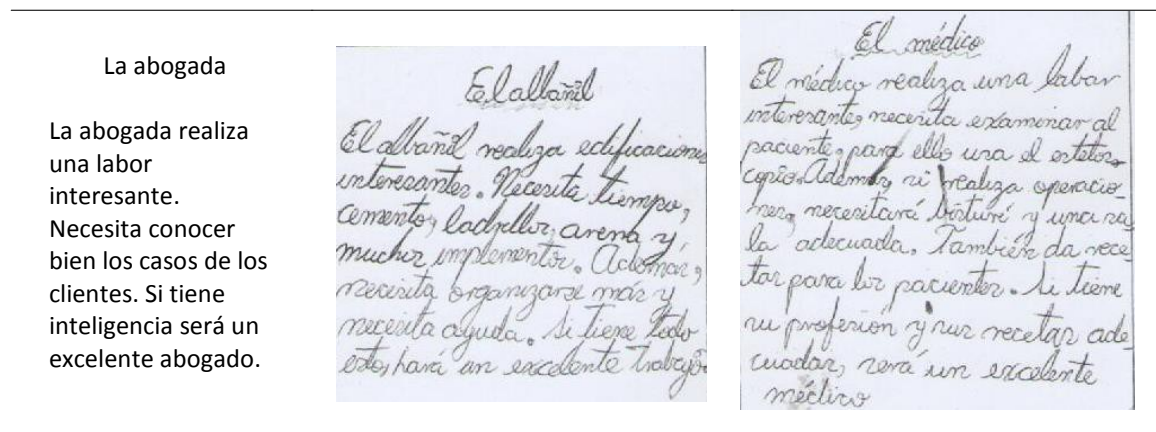 La abogada
La abogada realiza
una labor
interesante.
Necesita conocer
bien los casos de los
clientes. Si tiene
inteligencia será un
excelente abogado.
El albañil
El albañil realiza edificaciones
interesantes. Necesita tiempo,
cemento, ladrillos, arena y,
muchos implementos. Además,
necesita organizarse más y
necesita ayuda. Si tiene todo
esto, hará un excelente trabajo
El médico
El médico realiza una labor
interesante, necesita examinar al
paciente, para ello usa el estetos
copio. Además, si realiza operacio
nes, necesitará bisturí y una sa
la adecuada. También da rece
tas para los pacientes. Si tiene
su profesión y sus recetas ade
cuadas, será un excelente
médico